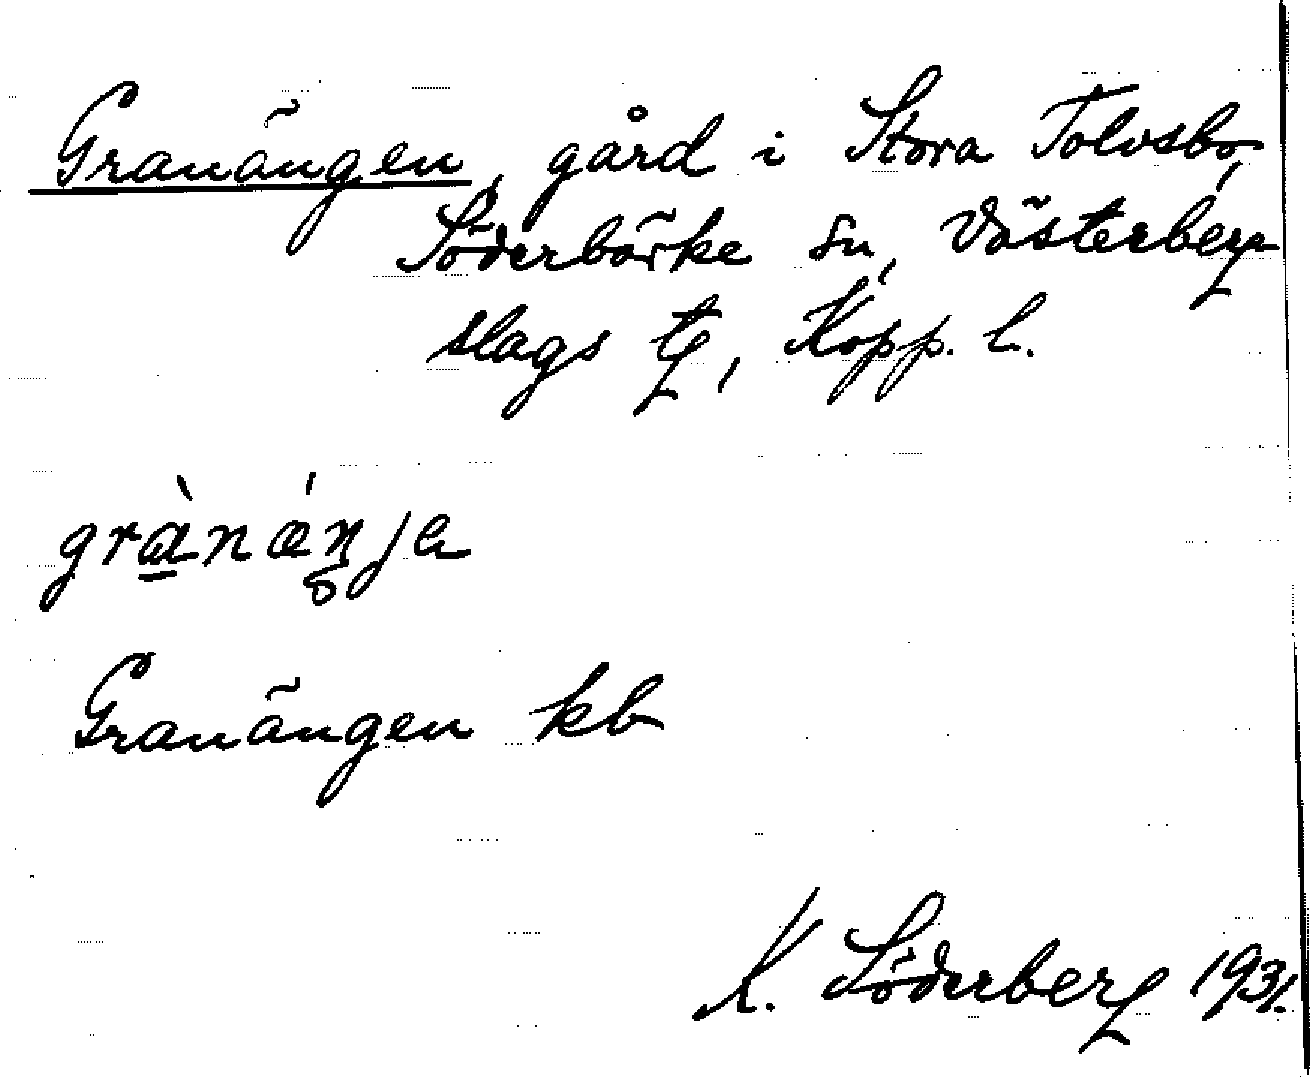 Granängen, gård i Stora Tolvsbo,
Söderbärke sn, Västerberg
slags tg, Kopp. l.
grànǽnja
Granängen kb
K. Söderberg 1931.